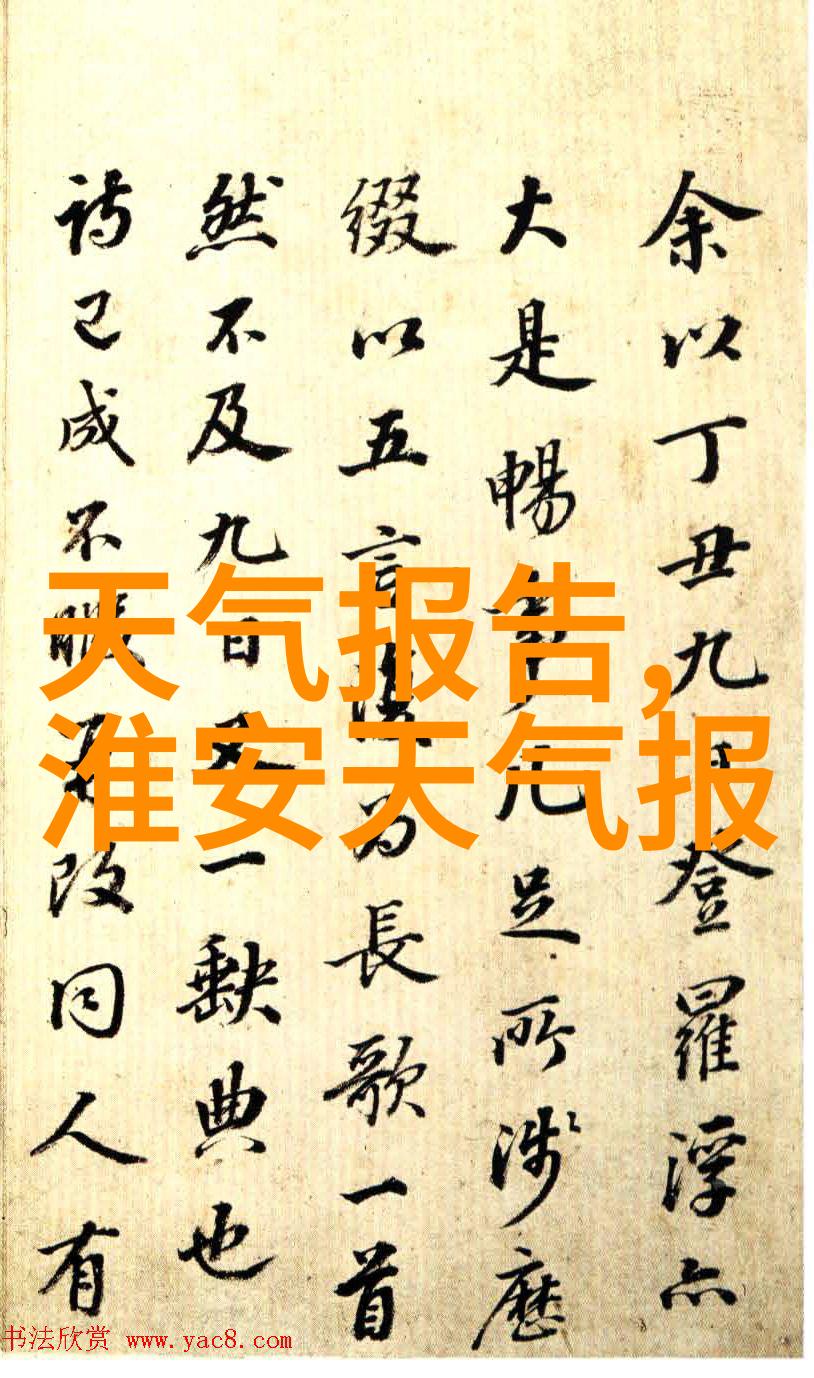 余以丁丑九日登羅浮亦
大是暢事凡足所涉歷
綴以五言復为長歌一首
然不及九日又一缺典也
詩已成不暇更改同人有
天气报告,
淮安天气报
书法欣赏 www.yac8.com